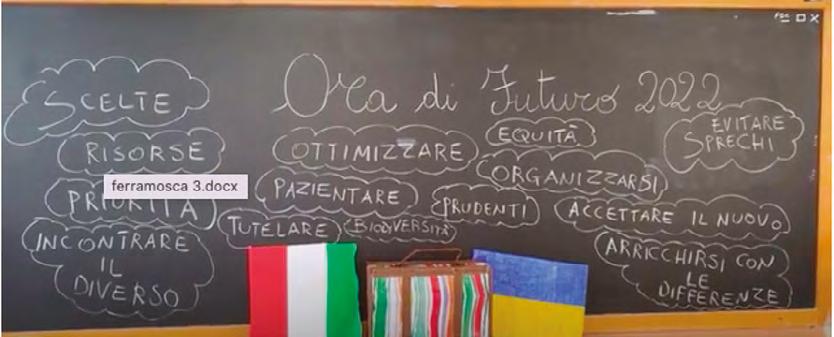 Ora di Futuro 2022
SCELTE
RISORSE
PRIORITÀ
INCONTRARE
IL
DIVERSO
ferramosca 3.docx
OTTIMIZZARE
PAZIENTARE
TUTELARE
BIODIVERSITÀ
EQUITÀ
ORGANIZZARSI
PRUDENTI
EVITARE
SPRECHI
ACCETTARE IL NUOVO
ARRICCHIRSI CON
LE
DIFFERENZE